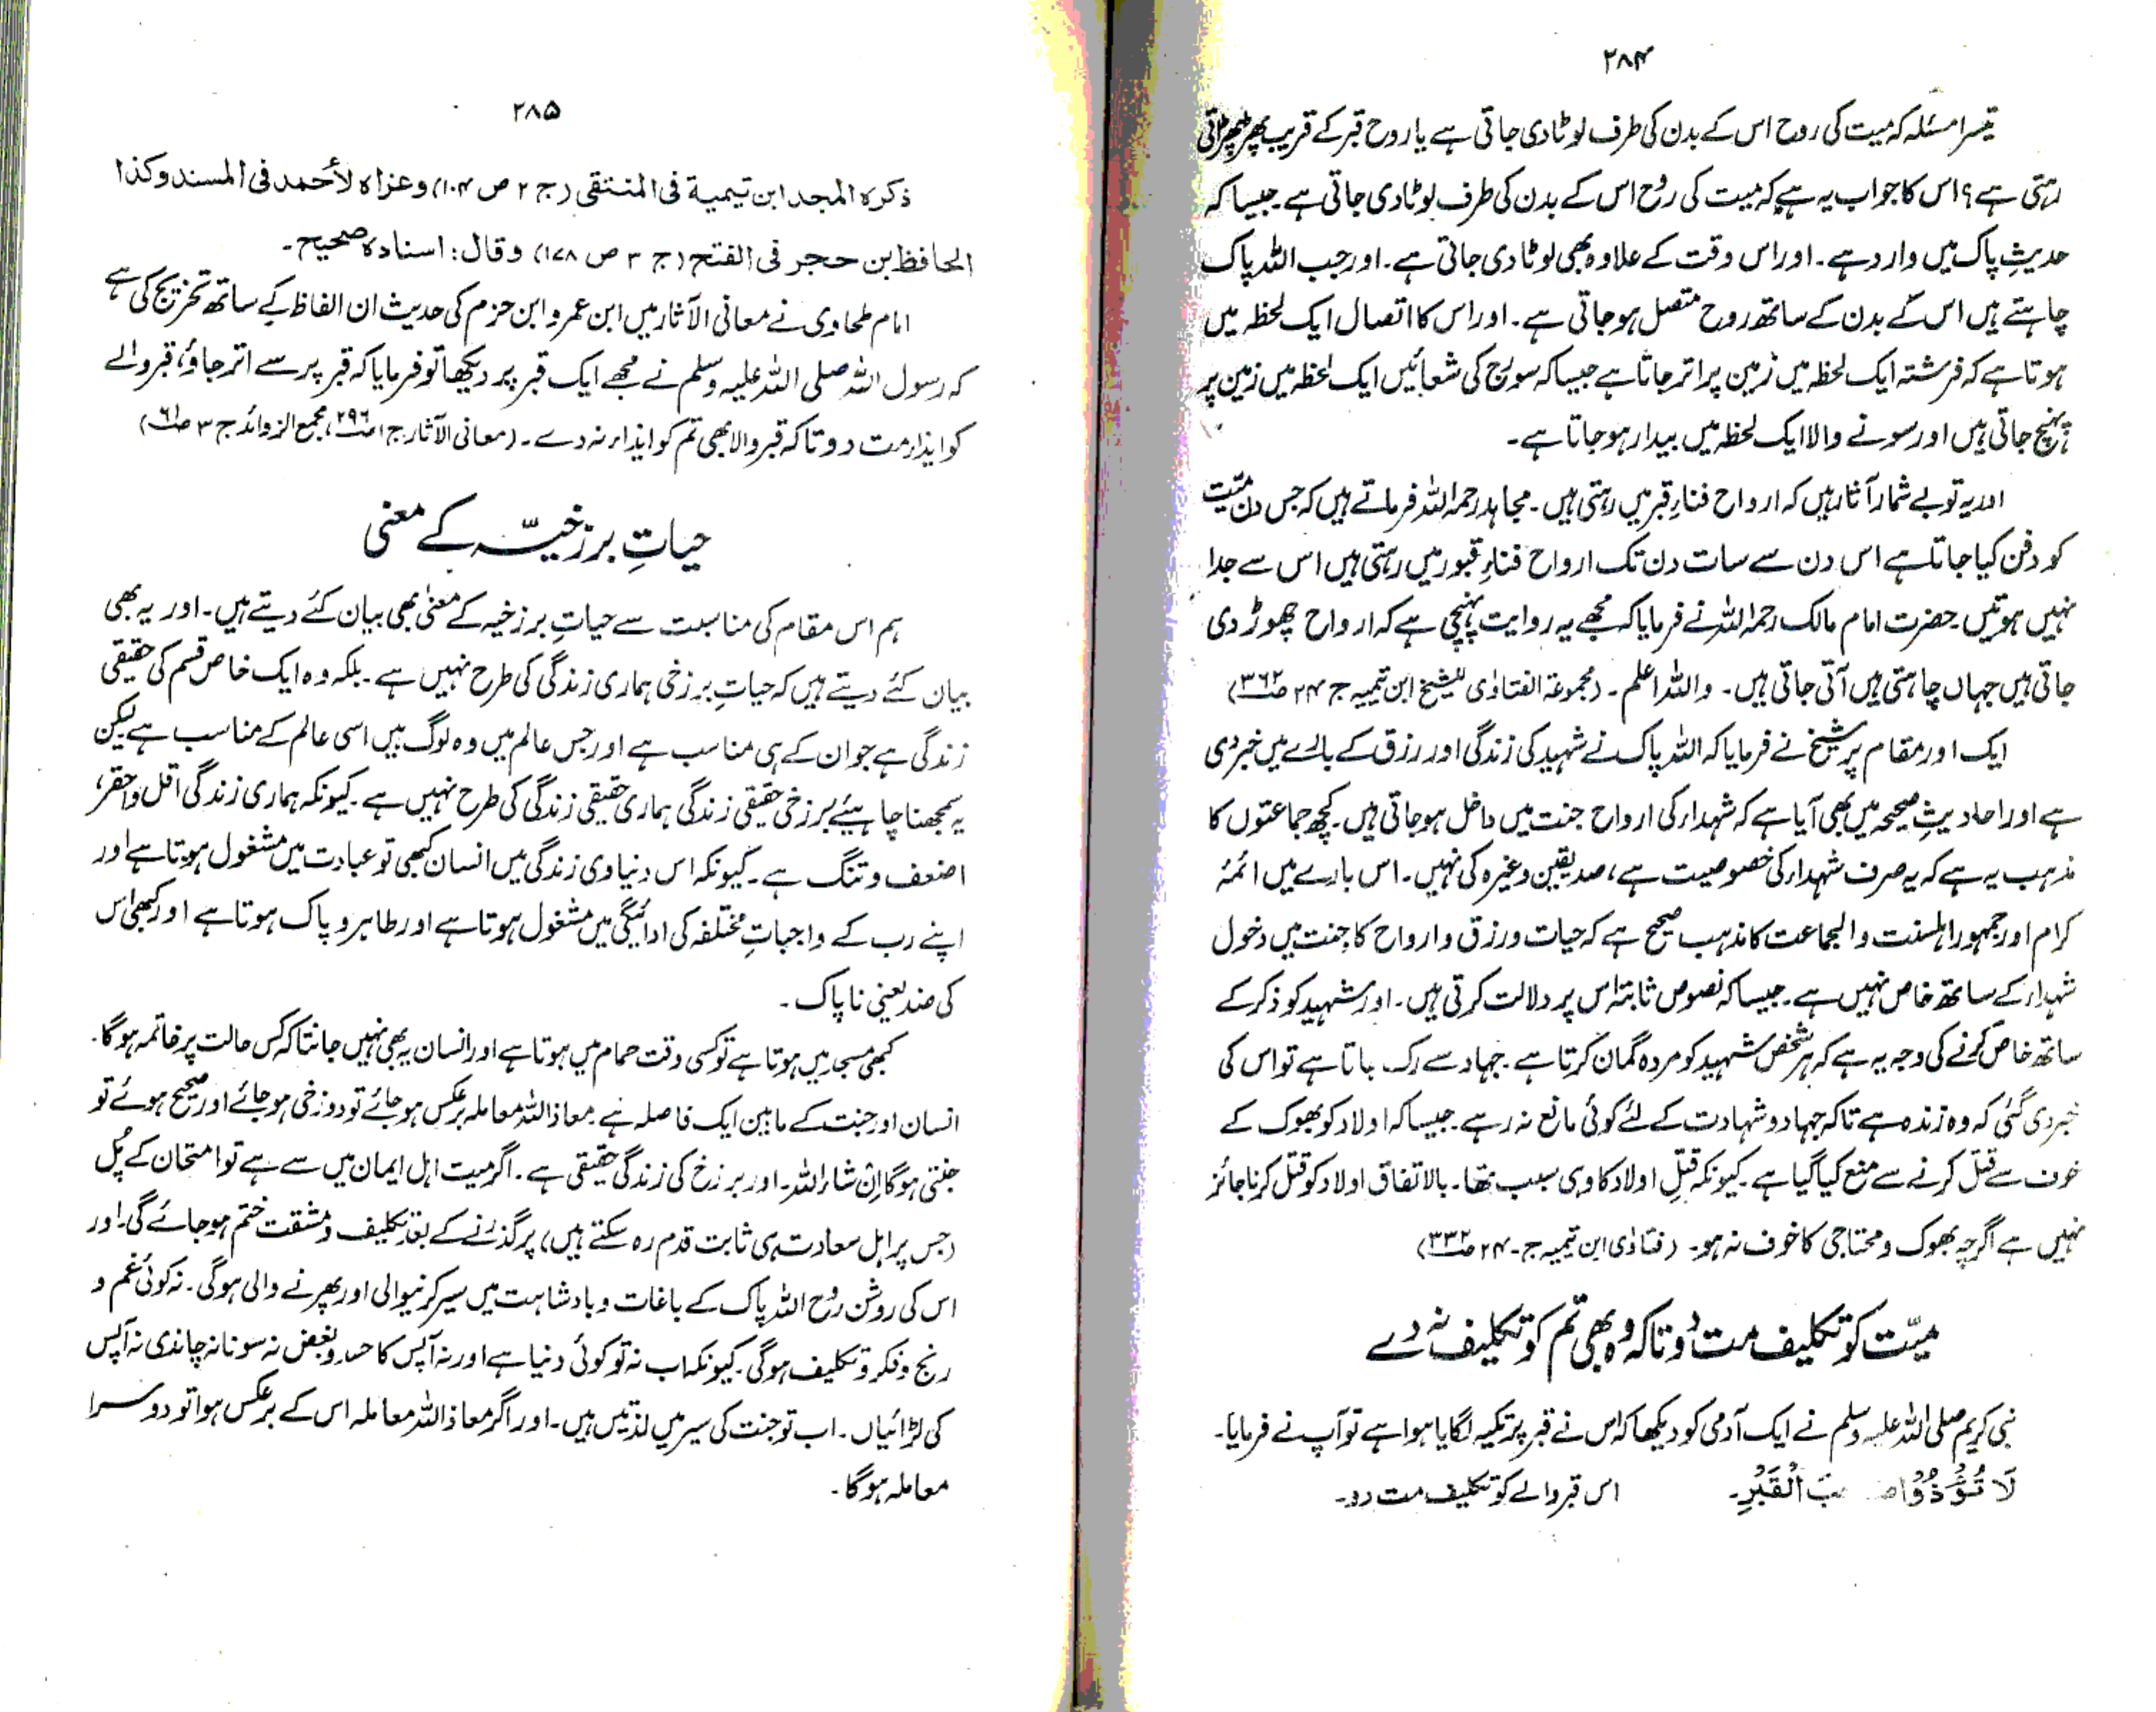 ۲۸۴
تیسرا مسئلہ کہ میت کی روح اس کے بدن کی طرف لوٹا دی جاتی ہے یا روح قبر کے قریب پھڑپھڑاتی
رہتی ہے؟ اس کا جواب یہ ہے کہ میت کی رُوح اس کے بدن کی طرف لوٹا دی جاتی ہے۔ جیسا کہ
حدیثِ پاک میں وارد ہے۔ اور اس وقت کے علاوہ بھی لوٹا دی جاتی ہے۔ اور جب اللہ پاک
چاہتے ہیں اس کے بدن کے ساتھ روح متصل ہو جاتی ہے۔ اور اس کا اتصال ایک لحظہ میں
ہوتا ہے کہ فرشتہ ایک لحظہ میں زمین پر اتر جاتا ہے جیسا کہ سورج کی شعائیں ایک لحظہ میں زمین پر
پہنچ جاتی ہیں اور سونے والا ایک لحظہ میں بیدار ہو جاتا ہے۔
اور یہ تو بے شمار آثار ہیں کہ ارواح فناءِ قبر میں رہتی ہیں۔ مجاہد رحمہ اللہ فرماتے ہیں کہ جس دن میّت
کو دفن کیا جاتا ہے اس دن سے سات دن تک ارواح فناءِ قبور میں رہتی ہیں اس سے جدا
نہیں ہوتیں۔ حضرت امام مالک رحمہ اللہ نے فرمایا کہ مجھے یہ روایت پہنچی ہے کہ ارواح چھوڑ دی
جاتی ہیں جہاں چاہتی ہیں آتی جاتی ہیں۔ واللہ اعلم۔ (مجموعۃ الفتاوٰی للشیخ ابن تیمیہ ج ۲۴ ص۳۶۲)
ایک اور مقام پر شیخ نے فرمایا کہ اللہ پاک نے شہید کی زندگی اور رزق کے بارے میں خبر دی
ہے اور احادیثِ صحیحہ میں بھی آیا ہے کہ شہداء کی ارواح جنت میں داخل ہو جاتی ہیں۔ کچھ جماعتوں کا
مذہب یہ ہے کہ یہ صرف شہداء کی خصوصیت ہے، صدیقین وغیرہ کی نہیں۔ اس بارے میں ائمۂ
کرام اور جمہور اہلسنت والجماعت کا مذہب صحیح ہے کہ حیات و رزق و ارواح کا جنت میں دخول
شہداء کے ساتھ خاص نہیں ہے۔ جیسا کہ نصوص ثابتہ اس پر دلالت کرتی ہیں۔ اور شہید کو ذکر کے
ساتھ خاص کرنے کی وجہ یہ ہے کہ ہر شخص شہید کو مردہ گمان کرتا ہے۔ جہاد سے رک جاتا ہے تو اس کی
خبر دی گئی کہ وہ زندہ ہے تاکہ جہاد و شہادت کے لئے کوئی مانع نہ رہے۔ جیسا کہ اولاد کو بھوک کے
خوف سے قتل کرنے سے منع کیا گیا ہے۔ کیونکہ قتلِ اولاد کا وہی سبب تھا۔ بالاتفاق اولاد کو قتل کرنا جائز
نہیں ہے اگرچہ بھوک و محتاجی کا خوف نہ ہو۔ (فتاوٰی ابن تیمیہ ج۔ ۲۴ ص۳۳۲)
میّت کو تکلیف مت دو تاکہ وہ بھی تم کو تکلیف نہ دے
نبی کریم صلی اللہ علیہ وسلم نے ایک آدمی کو دیکھا کہ اس نے قبر پر تکیہ لگایا ہوا ہے تو آپ نے فرمایا۔
لَا تُؤْذُوْا الْقَبْرِ۔ اس قبر والے کو تکلیف مت دو۔
۲۸۵
ذکرہ المجد ابن تیمیۃ فی المنتقی (ج ۲ ص ۱۰۴) وعزاہ لأحمد فی المسند وکذا
الحافظ بن حجر فی الفتح (ج ۳ ص ۱۷۸) وقال: اسنادہ صحیح۔
امام طحاوی نے معانی الآثار میں ابن عمرو ابن حزم کی حدیث ان الفاظ کے ساتھ تخریج کی ہے
کہ رسول اللہ صلی اللہ علیہ وسلم نے مجھے ایک قبر پر دیکھا تو فرمایا کہ قبر پر سے اتر جاؤ، قبر والے
کو ایذاء مت دو تاکہ قبر والا بھی تم کو ایذاء نہ دے۔ (معانی الآثار ج۱ ص۲۹۶، مجمع الزوائد ج ۳ ص۶۱)
حیاتِ برزخیّہ کے معنی
ہم اس مقام کی مناسبت سے حیاتِ برزخیہ کے معنیٰ بھی بیان کئے دیتے ہیں۔ اور یہ بھی
بیان کئے دیتے ہیں کہ حیاتِ برزخی ہماری زندگی کی طرح نہیں ہے۔ بلکہ وہ ایک خاص قسم کی حقیقی
زندگی ہے جو ان کے ہی مناسب ہے اور جس عالم میں وہ لوگ ہیں اسی عالم کے مناسب ہے لیکن
یہ سمجھنا چاہیئے برزخی حقیقی زندگی ہماری حقیقی زندگی کی طرح نہیں ہے۔ کیونکہ ہماری زندگی اقل و احقر،
اضعف و تنگ ہے۔ کیونکہ اس دنیاوی زندگی میں انسان کبھی تو عبادت میں مشغول ہوتا ہے اور
اپنے رب کے واجباتِ مختلفہ کی ادائیگی میں مشغول ہوتا ہے اور طاہر و پاک ہوتا ہے اور کبھی اس
کی ضد یعنی ناپاک۔
کبھی مسجد میں ہوتا ہے تو کسی وقت حمام میں ہوتا ہے اور انسان یہ بھی نہیں جانتا کہ کس حالت پر خاتمہ ہوگا۔
انسان اور جنت کے مابین ایک فاصلہ ہے۔ معاذ اللہ معاملہ برعکس ہو جائے تو دوزخی ہو جائے اور صحیح ہوئے تو
جنتی ہوگا اِن شاء اللہ۔ اور برزخ کی زندگی حقیقی ہے۔ اگر میت اہل ایمان میں سے ہے تو امتحان کے پُل
(جس پر اہل سعادت ہی ثابت قدم رہ سکتے ہیں) پر گذرنے کے بعد تکلیف و مشقت ختم ہو جائے گی۔ اور
اس کی روشن رُوح اللہ پاک کے باغات و بادشاہت میں سیر کرنیوالی اور پھرنے والی ہوگی۔ نہ کوئی غم و
رنج و فکر و تکلیف ہوگی۔ کیونکہ اب نہ تو کوئی دنیا ہے اور نہ آپس کا حسد و بغض نہ سونا نہ چاندی نہ آپس
کی لڑائیاں۔ اب تو جنت کی سیر میں لذتیں ہیں۔ اور اگر معاذ اللہ معاملہ اس کے برعکس ہوا تو دوسرا
معاملہ ہوگا۔